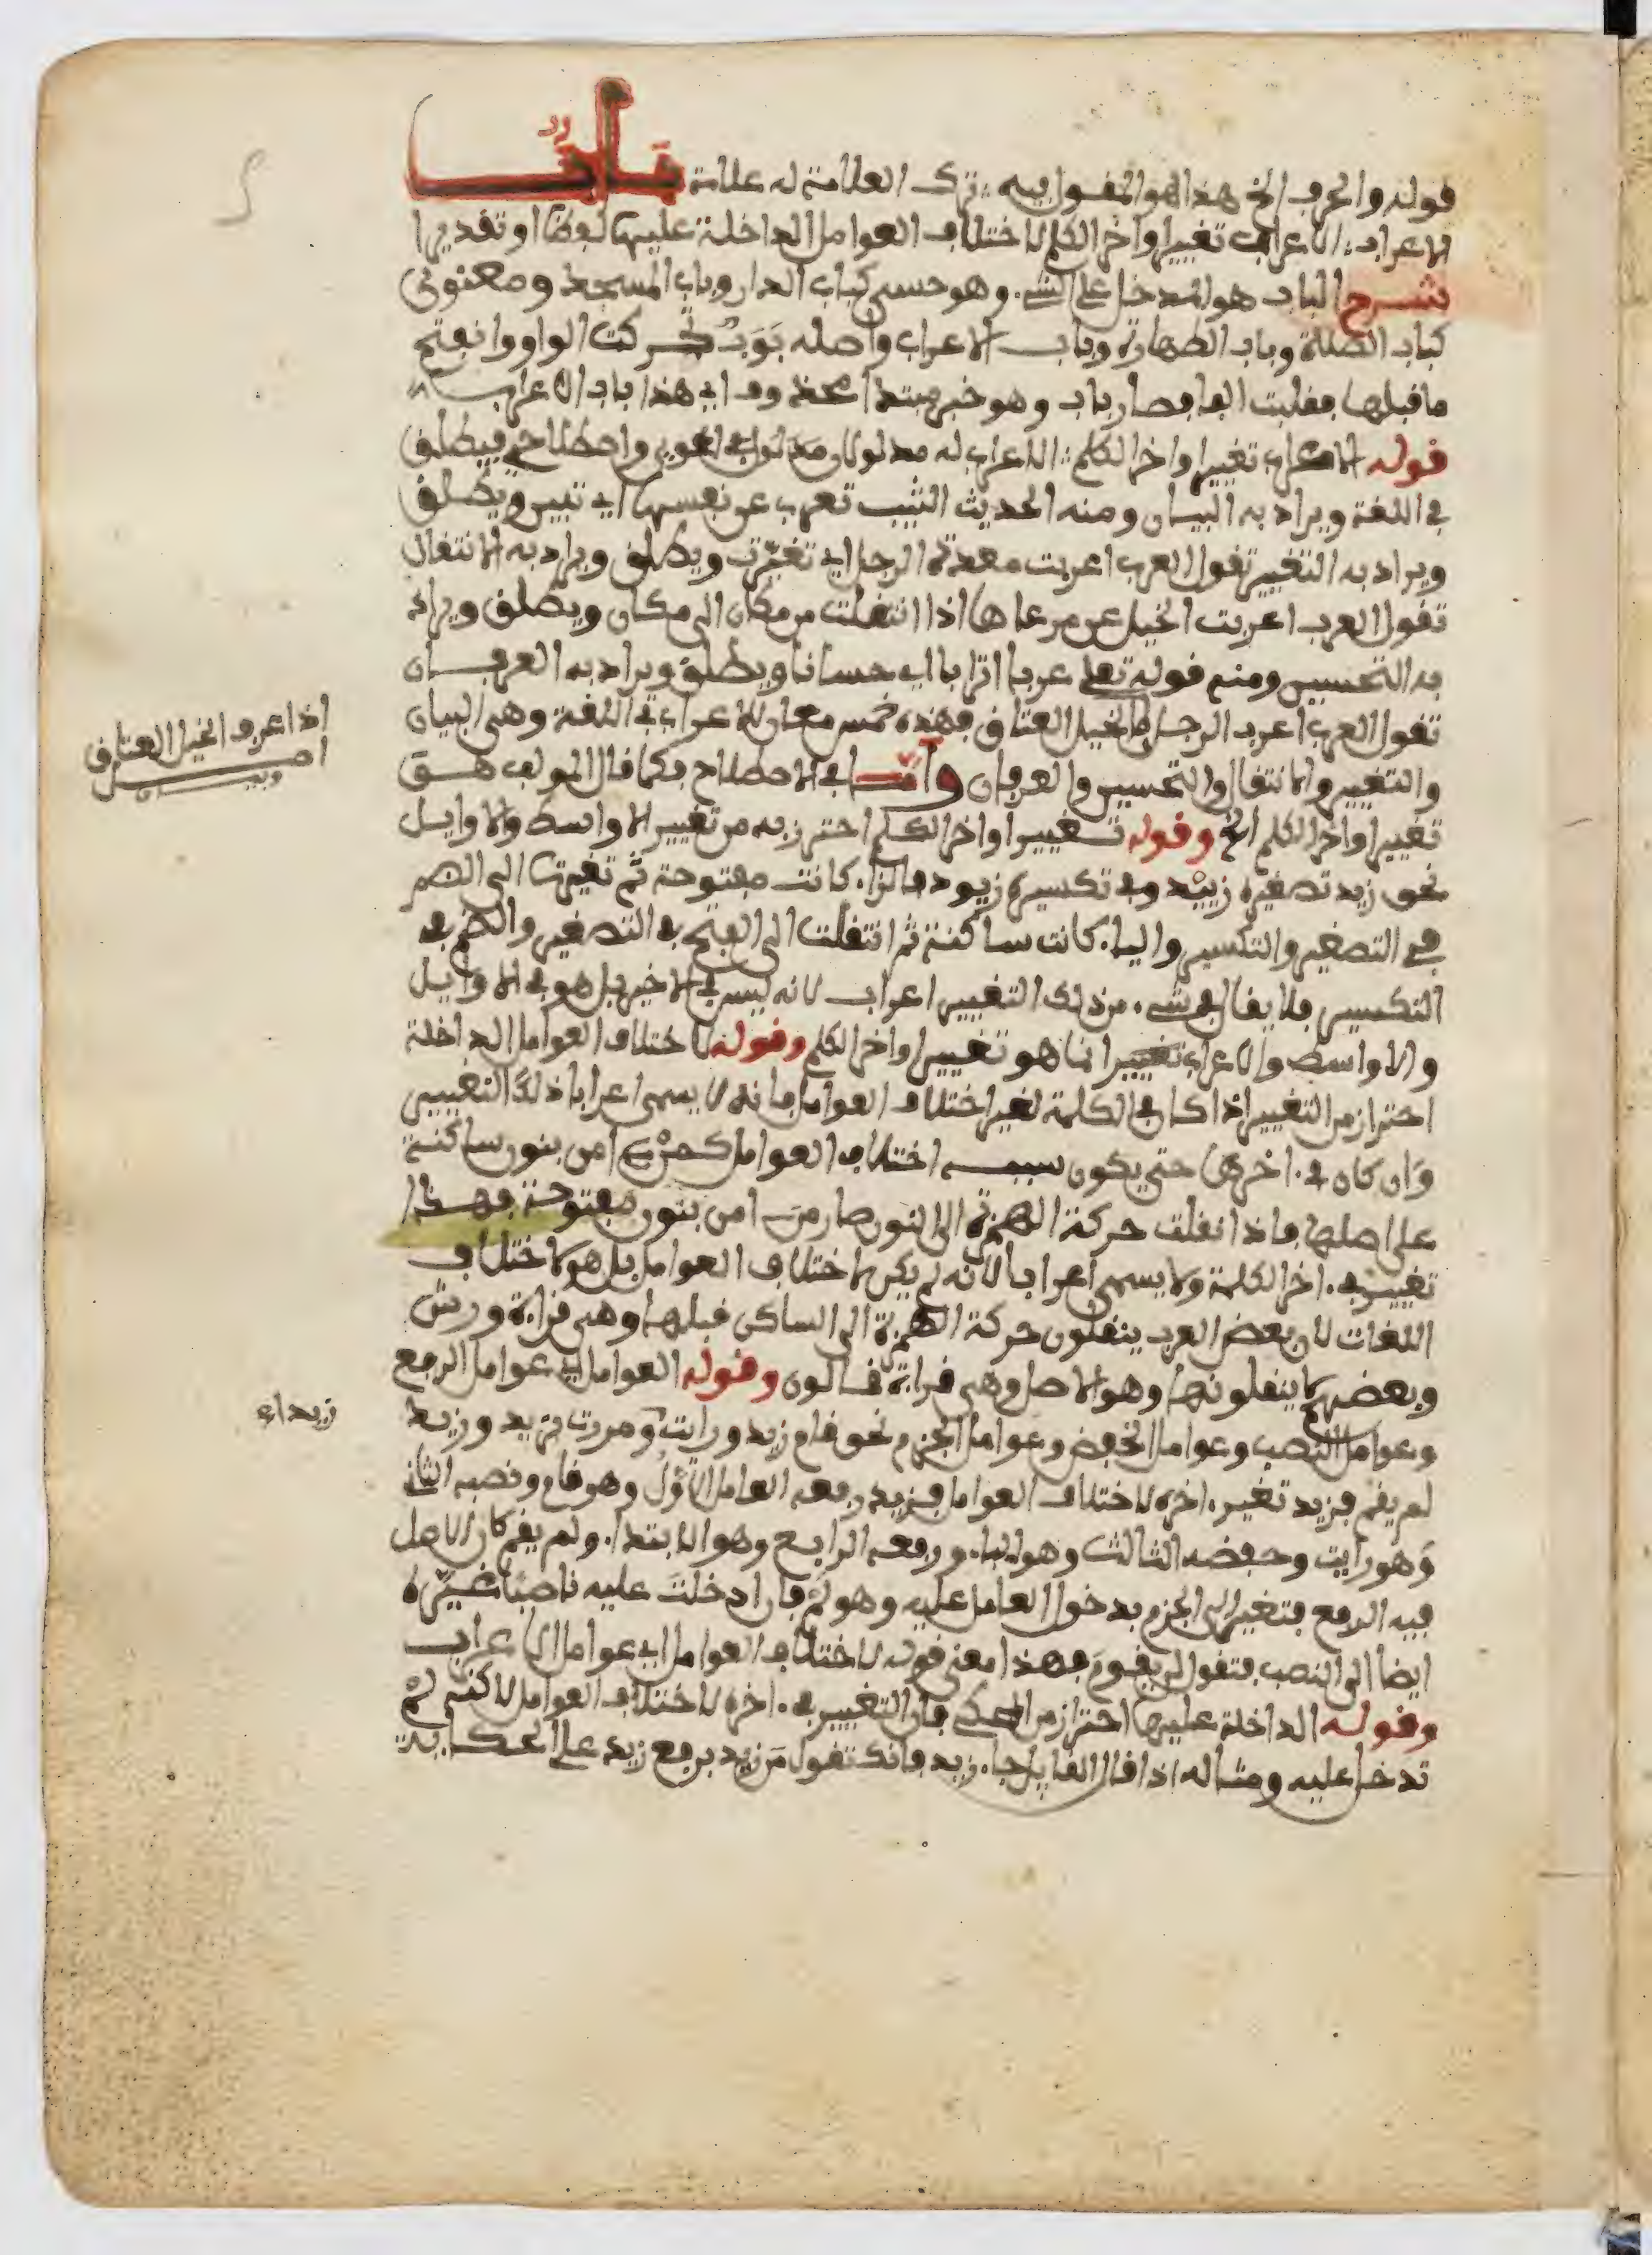 قوله والحرف الخ هذا هو المقول فيه ترك العلامة له علامة باب
الاعراب الاعراب تغيير اواخر الكلم لاختلاف العوامل الداخلة عليها لفظا او تقديرا
شرح الباب هو المدخل على الشيء وهو حسي كباب الدار وباب المسجد ومعنوي
كباب الصلاة وباب الطهارة وباب الاعراب واصله بوب تحركت الواو وانفتح
ما قبلها فقلبت الفا فصار باب وهو خبر مبتدا محذوف اي هذا باب الاعراب
قوله الاعراب تغيير اواخر الكلم الاعراب له مدلولان مدلول لغوي واصطلاحي فيطلق
في اللغة ويراد به البيان ومنه الحديث الثيب تعرب عن نفسها اي تبين ويطلق
ويراد به التغيير تقول العرب اعربت معدة الرجل اي تغيرت ويطلق ويراد به الانتقال
تقول العرب اعربت الخيل عن مرعاها اذا انتقلت من مكان الى مكان ويطلق ويراد
به التحسين ومنه قوله تعلى عربا اترابا اي حسانا ويطلق ويراد به العرفان
تقول العرب اعرب الرجل الخيل العتاق فهذه خمس معان للاعراب في اللغة وهي البيان
والتغيير والانتقال والتحسين والعرفان واما في الاصطلاح فكما قال المولف هو
تغيير اواخر الكلم الخ وقوله تغيير اواخر الكلم احترز به من تغيير الاواسط والاوايل
نحو زيد تصغيره زييد وفي تكسيره زيود فالزاء كانت مفتوحة ثم تغيرت الى الضم
في التصغير والتكسير والياء كانت ساكنة ثم انتقلت الى الفتح في التصغير والضم في
التكسير فلا يقال في شيء من ذلك التغيير اعراب لانه ليس في الاخير بل هو في الاوايل
والاواسط والاعراب تغيير انما هو تغيير اواخر الكلم وقوله لاختلاف العوامل الداخلة
احتراز من التغيير اذا كان في الكلمة لغير اختلاف العوامل فانه لا يسمى اعرابا ذلك التغيير
وان كان في ءاخرها حتى يكون سببه اختلاف العوامل كمن امن بنون ساكنة
على اصلها فاذا نقلت حركة الهمزة الى النون صار من امن بنون مفتوحة فهذا
تغيير في ءاخر الكلمة ولا يسمى اعرابا لانه لم يكن لاختلاف العوامل بل هو لاختلاف
اللغات لان بعض العرب ينقلون حركة الهمزة الى الساكن قبلها وهي قراءة ورش
وبعضهم لا ينقلونها وهو الاصل وهي قراءة قالون وقوله العوامل اي عوامل الرفع
وعوامل النصب وعوامل الخفض وعوامل الجزم نحو قام زيد ورايت ومررت بزيد وزيد
لم يقم فزيد تغير ءاخره لاختلاف العوامل فزيد رفعه العامل الاول وهو قام ونصبه الثاني
وهو رايت وخفضه الثالث وهو الباء ورفعه الرابع وهو الابتداء ولم يقم كان الاصل
فيه الرفع فتغير الى الجزم بدخول العامل عليه وهو لم فان ادخلت عليه ناصبا تغيره
ايضا الى النصب فتقول لن يقوم فهذا معنى قوله لاختلاف العوامل اي عوامل الاعراب
وقوله الداخلة عليها احتراز من المحكي فان التغيير في ءاخره لاختلاف العوامل لاكنه لم
تدخل عليه ومثاله اذا قال القايل جاء زيد فانك تقول من زيد برفع زيد على الحكاية
اذا عرف الخيل العتاق
اصل
وبيان
زيداء